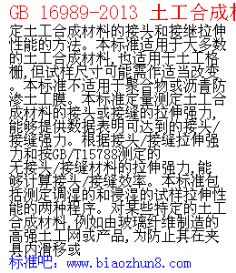 GB 16989-2013 土工合成材
定土工合成材料的接头和接缝拉伸
性能的方法。本标准适用于大多数
的土工合成材料,也适用于土工格
栅,但试样尺寸可能需作适当改变
。本标准不适用于聚合物或沥青防
渗土工膜。本标准定量测定土工合
成材料的接头或接缝的拉伸强力,
能够提供数据表明可达到的接头/
接缝强力。根据接头/接缝拉伸强
力和按GB/T15788测定的
无接头/接缝材料的拉伸强力,能
够计算接头/接缝效率。本标准包
括测定调湿的和浸湿的试样拉伸性
能的两种程序。对某些特定的土工
合成材料,例如由玻璃纤维制造的
高强土工网或产品,为防止其在夹
具内滑移或
标准吧: www.biaozhun8.com